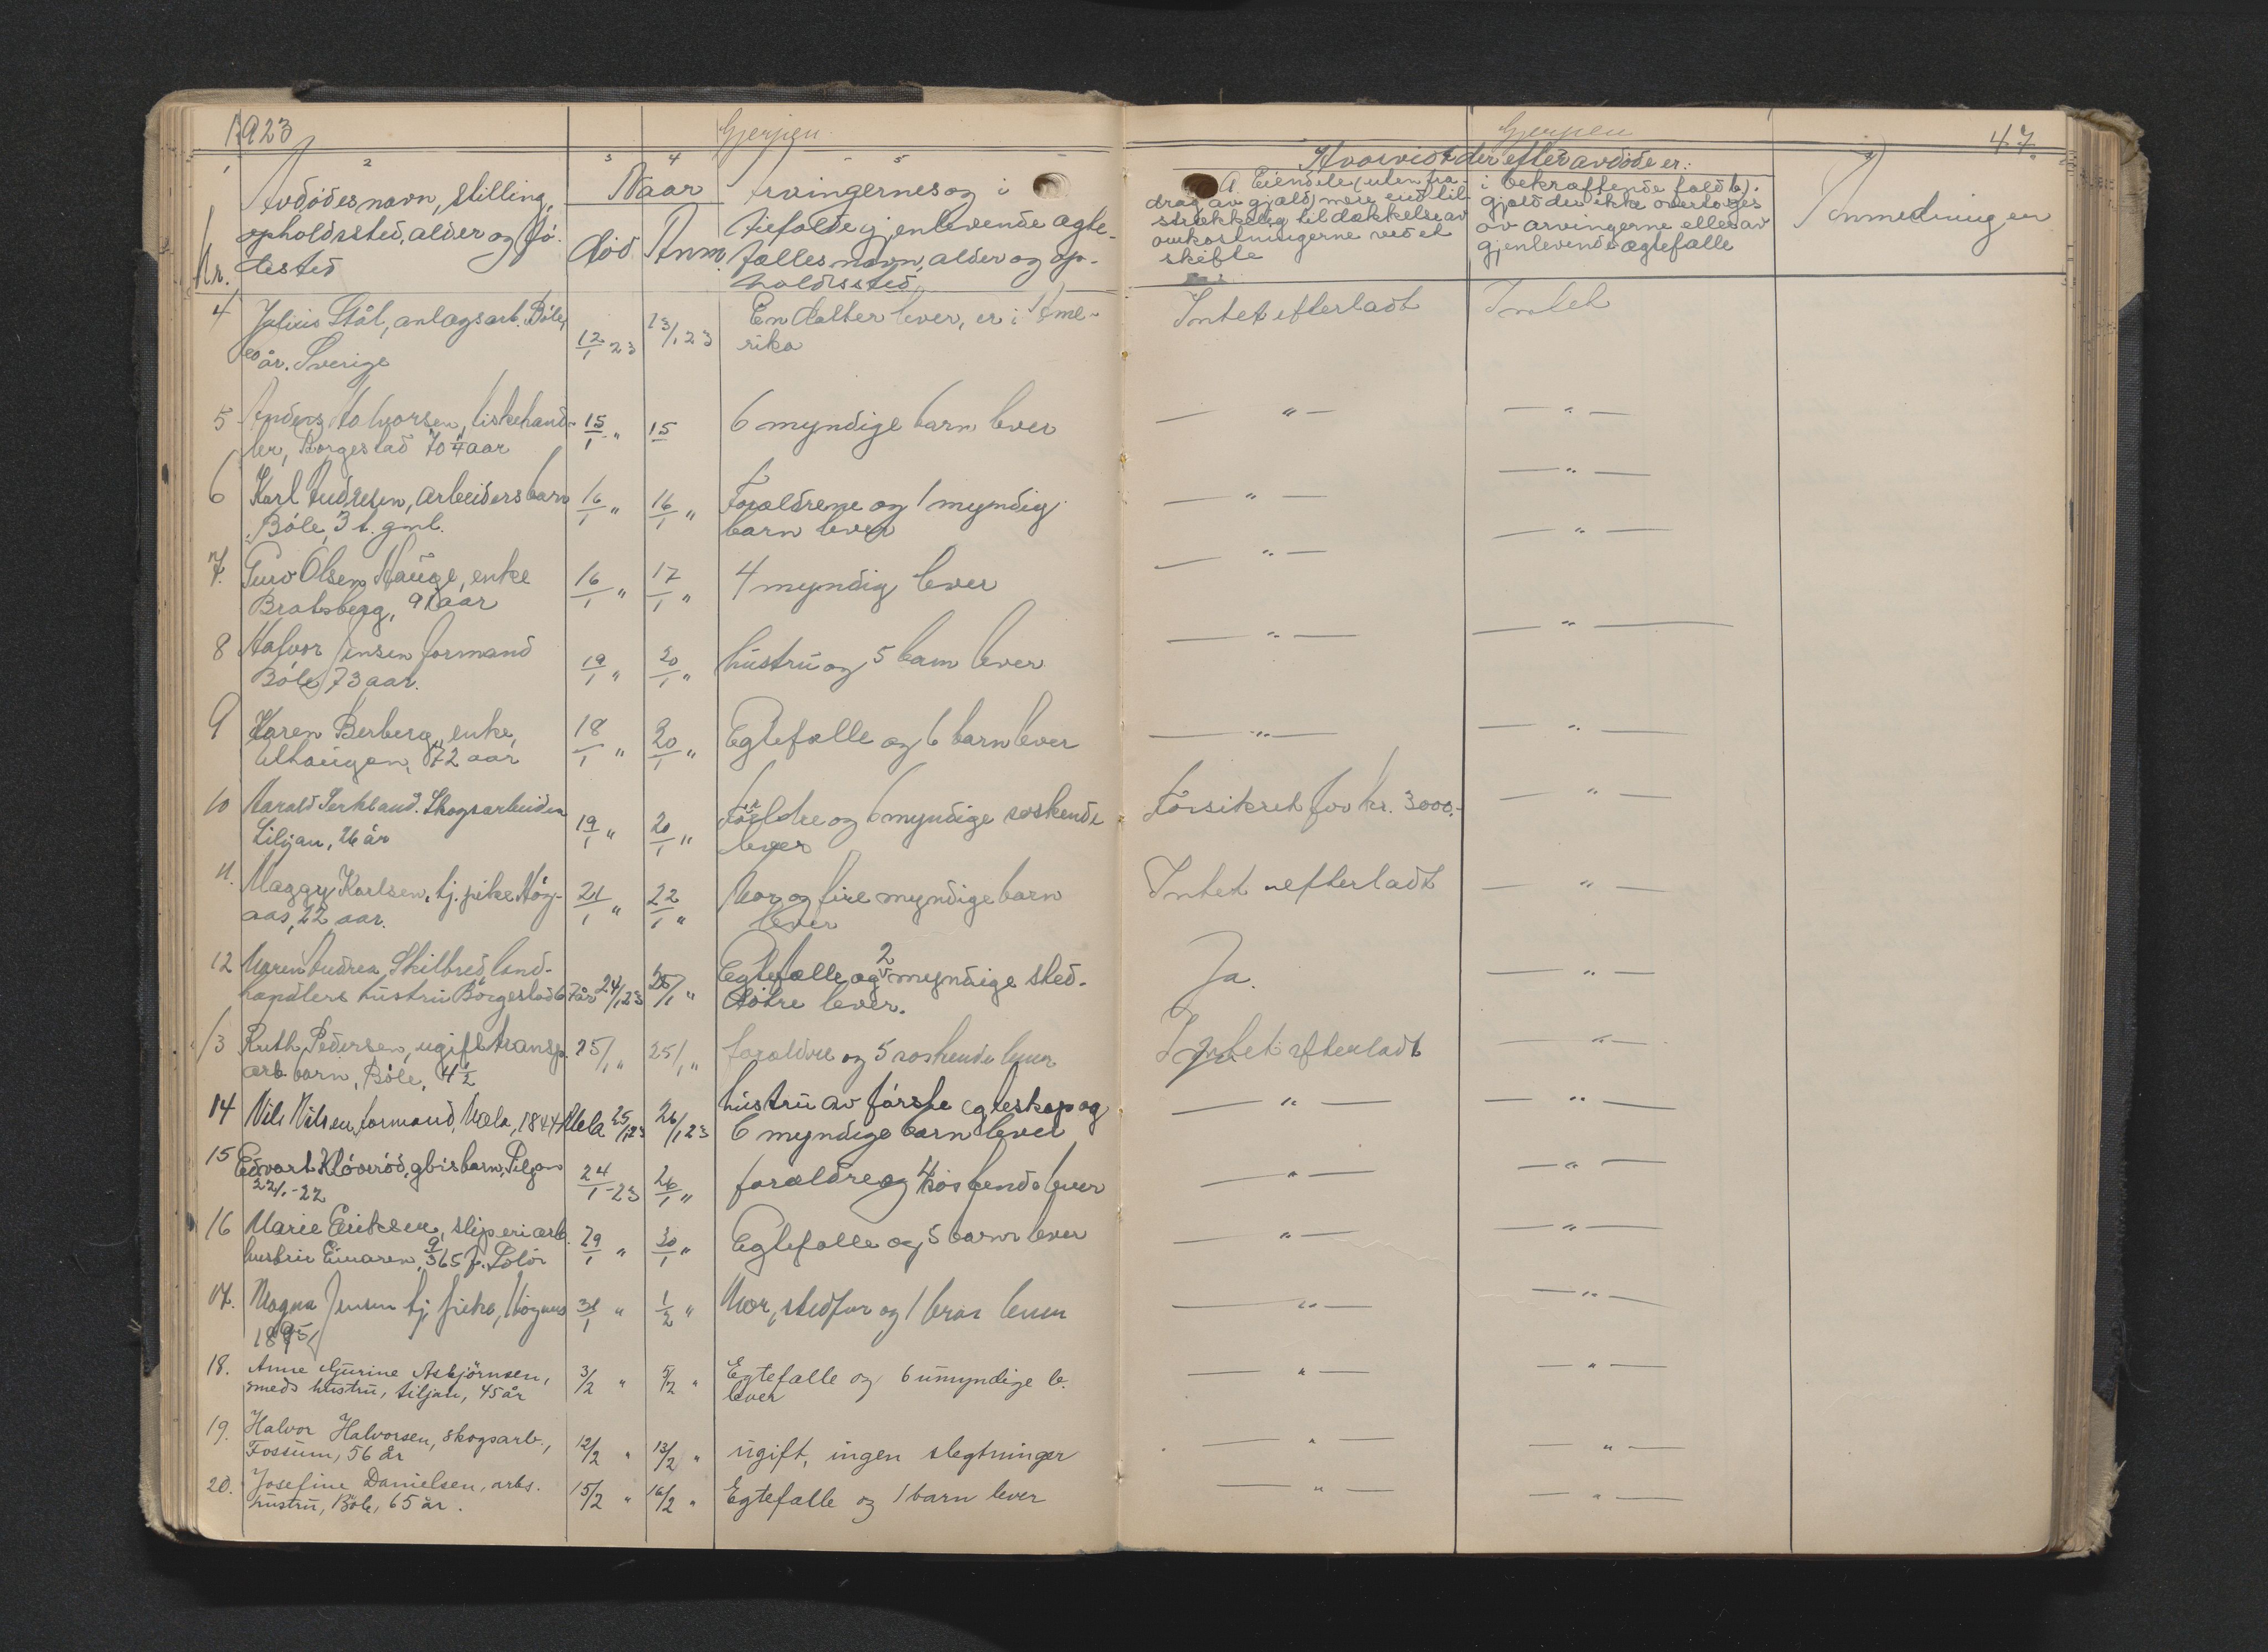 1923
Gjerpen
Gjerpen
47.
1 2 3 4 5
Nr.
Avdødes navn, stilling,
opholdssted, alder og fø-
dested
Naar
død
Anm.
Arvingernes og i
tilfælde gjenlevende ægte-
fælles navn, alder og op-
holdssted
Hvorvidt der efter avdøde er:
a. Eiendele (uten fra-
drag av gjæld) mere end til-
strækkelig til dækkelse av
omkostningerne ved et
skifte
i bekræftende fald b).
gjæld der ikke overtages
av arvingerne eller av
gjenlevende ægtefælle
Anmerkninger
4 Julius Stål, anlægsarb. Böle, 12/1 23 13/1 23 En datter lever, er i Ame- Intet efterladt Intet
60 år. Sverige rika
5 Anders Halvorsen, fiskehand- 15/1 " 15 6 myndige barn lever — " — — " —
ler, Borgestad 70 aar
6 Karl Andresen, arbeidersbarn 16/1 " 16/1 " Forældrene og 1 myndig — " — — " —
Böle, 3 t. gml. barn lever
7. Guro Olsen Hauge, enke 16/1 " 17/1 " 4 myndig lever — " — — " —
Bratsberg, 91 aar
8 Halvor Jensen formand 19/1 " 20/1 " hustru og 5 barn lever — " — — " —
Böle 73 aar.
9 Karen Berberg, enke, 18/1 " 20/1 " Egtefælle og 6 barn lever — " — — " —
72 aar
10 Harald Serkland. Skogsarbeider 19/1 " 20/1 " Forældre og 6 myndige søskende Forsikret for kr. 3000.- — " —
Siljan, 26 år lever
11. Maggy Karlsen, tj. pike Høg- 21/1 " 22/1 " Mor og fire myndige barn Intet efterladt — " —
aas, 22 aar. lever
12 Maren Andrea Skilbred, land- 24/1 23 25/1 " Egtefælle og 2 myndige sted- Ja. — " —
handlers hustru Borgestad 67 år døtre lever.
13 Ruth Pedersen, ugift transp. 25/1 " 25/1 " forældre og 5 søskende lever Intet efterladt — " —
arb. barn, Böle, 4 1/2
14 Nils Nilsen, formand, Mæla, 1844 Mæla 25/1 23 26/1 23 hustru av første egteskap og — " — — " —
6 myndige barn lever
15 Edvart Kløverød, gbr's barn, Siljan 24/1-23 26/1 " forældre og 4 søskende lever — " — — " —
22/1-22
16 Marie Eriksen, sliperiarb. 29/1 " 30/1 " Egtefælle og 5 barn lever — " — — " —
hustru 9/3 65 f. Solør
17. Magna Jensen tj. pike, Høgaas 31/1 " 1/2 " Mor, stedfar og 1 bror lever — " — — " —
1895
18. Anne Gurine Asbjörnsen, 3/2 " 5/2 " Egtefælle og 6 umyndige b. — " — — " —
smeds hustru, Siljan, 45 år lever
19. Halvor Halvorsen, skogsarb., 12/2 " 13/2 " ugift, ingen slegtninger — " — — " —
Fossum, 56 år
20. Josefine Danielsen, arbs. 15/2 " 16/2 " Egtefælle og 1 barn lever — " — — " —
hustru, Böle, 65 år.